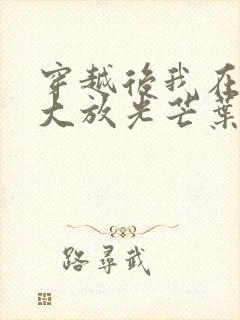 穿越後我在
大放光芒葉
路尋武